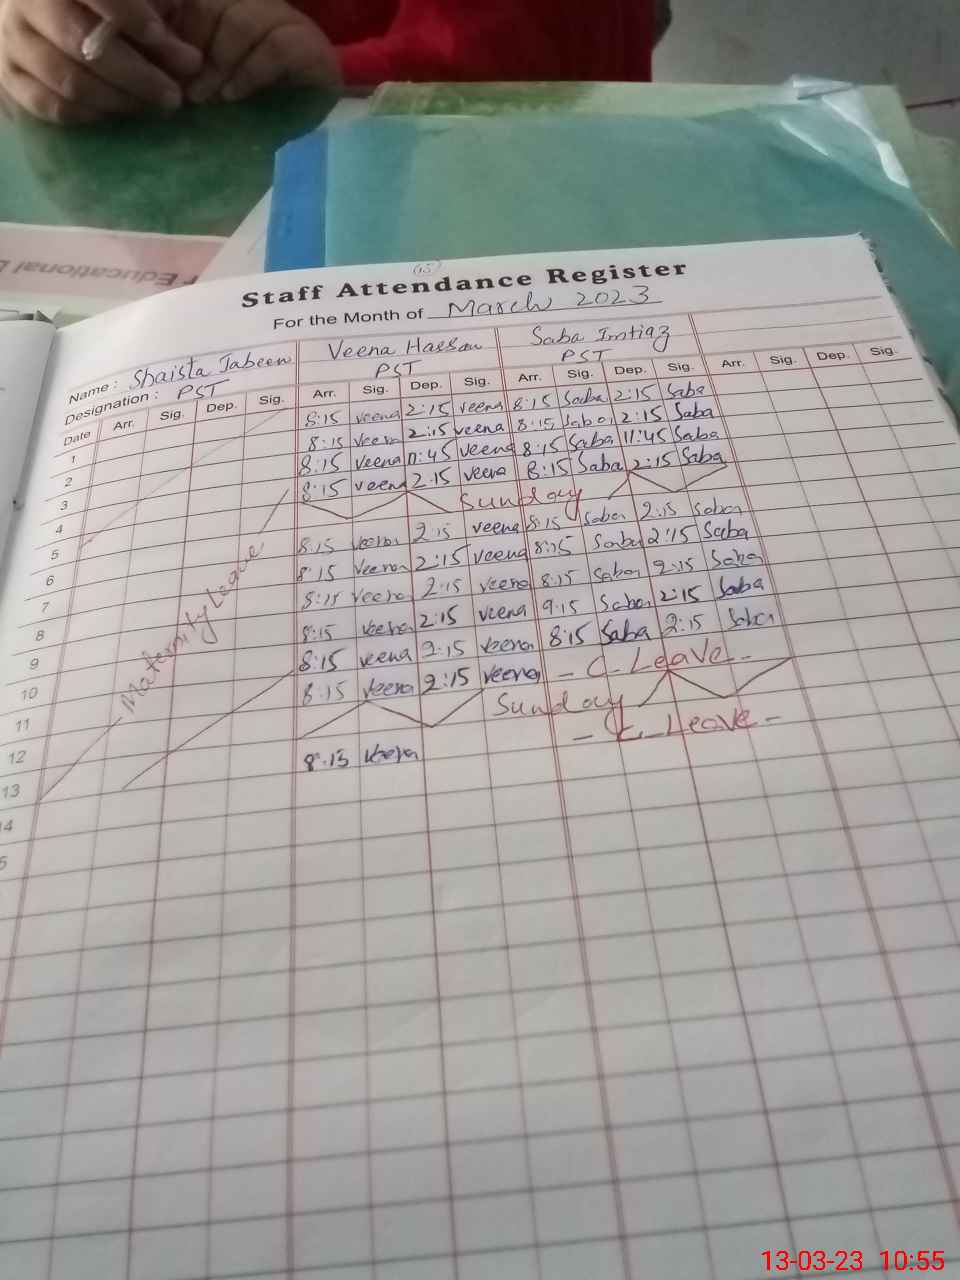 Educational
(15)
Staff Attendance Register
For the Month of March 2023
Name : Shaista Jabeen Veena Hassan Saba Imtiaz
Designation : PST PST PST
Date Arr. Sig. Dep. Sig. Arr. Sig. Dep. Sig. Arr. Sig. Dep. Sig. Arr. Sig. Dep. Sig.
1 8:15 veena 2:15 veena 8:15 Saba 2:15 Saba
2 8:15 veena 2:15 veena 8:15 Saba 2:15 Saba
3 8:15 veena 11:45 veena 8:15 Saba 11:45 Saba
4 8:15 veena 2:15 veena 8:15 Saba 2:15 Saba
5 Sunday
6 8:15 veena 2:15 veena 8:15 Saba 2:15 Saba
7 8:15 veena 2:15 veena 8:15 Saba 2:15 Saba
8 8:15 veena 2:15 veena 8:15 Saba 2:15 Saba
9 8:15 veena 2:15 veena 9:15 Saba 2:15 Saba
10 8:15 veena 2:15 veena 8:15 Saba 2:15 Saba
11 8:15 veena 2:15 veena - C. Leave -
12 Sunday
13 8:15 veena - C. Leave -
Maternity Leave
13-03-23 10:55